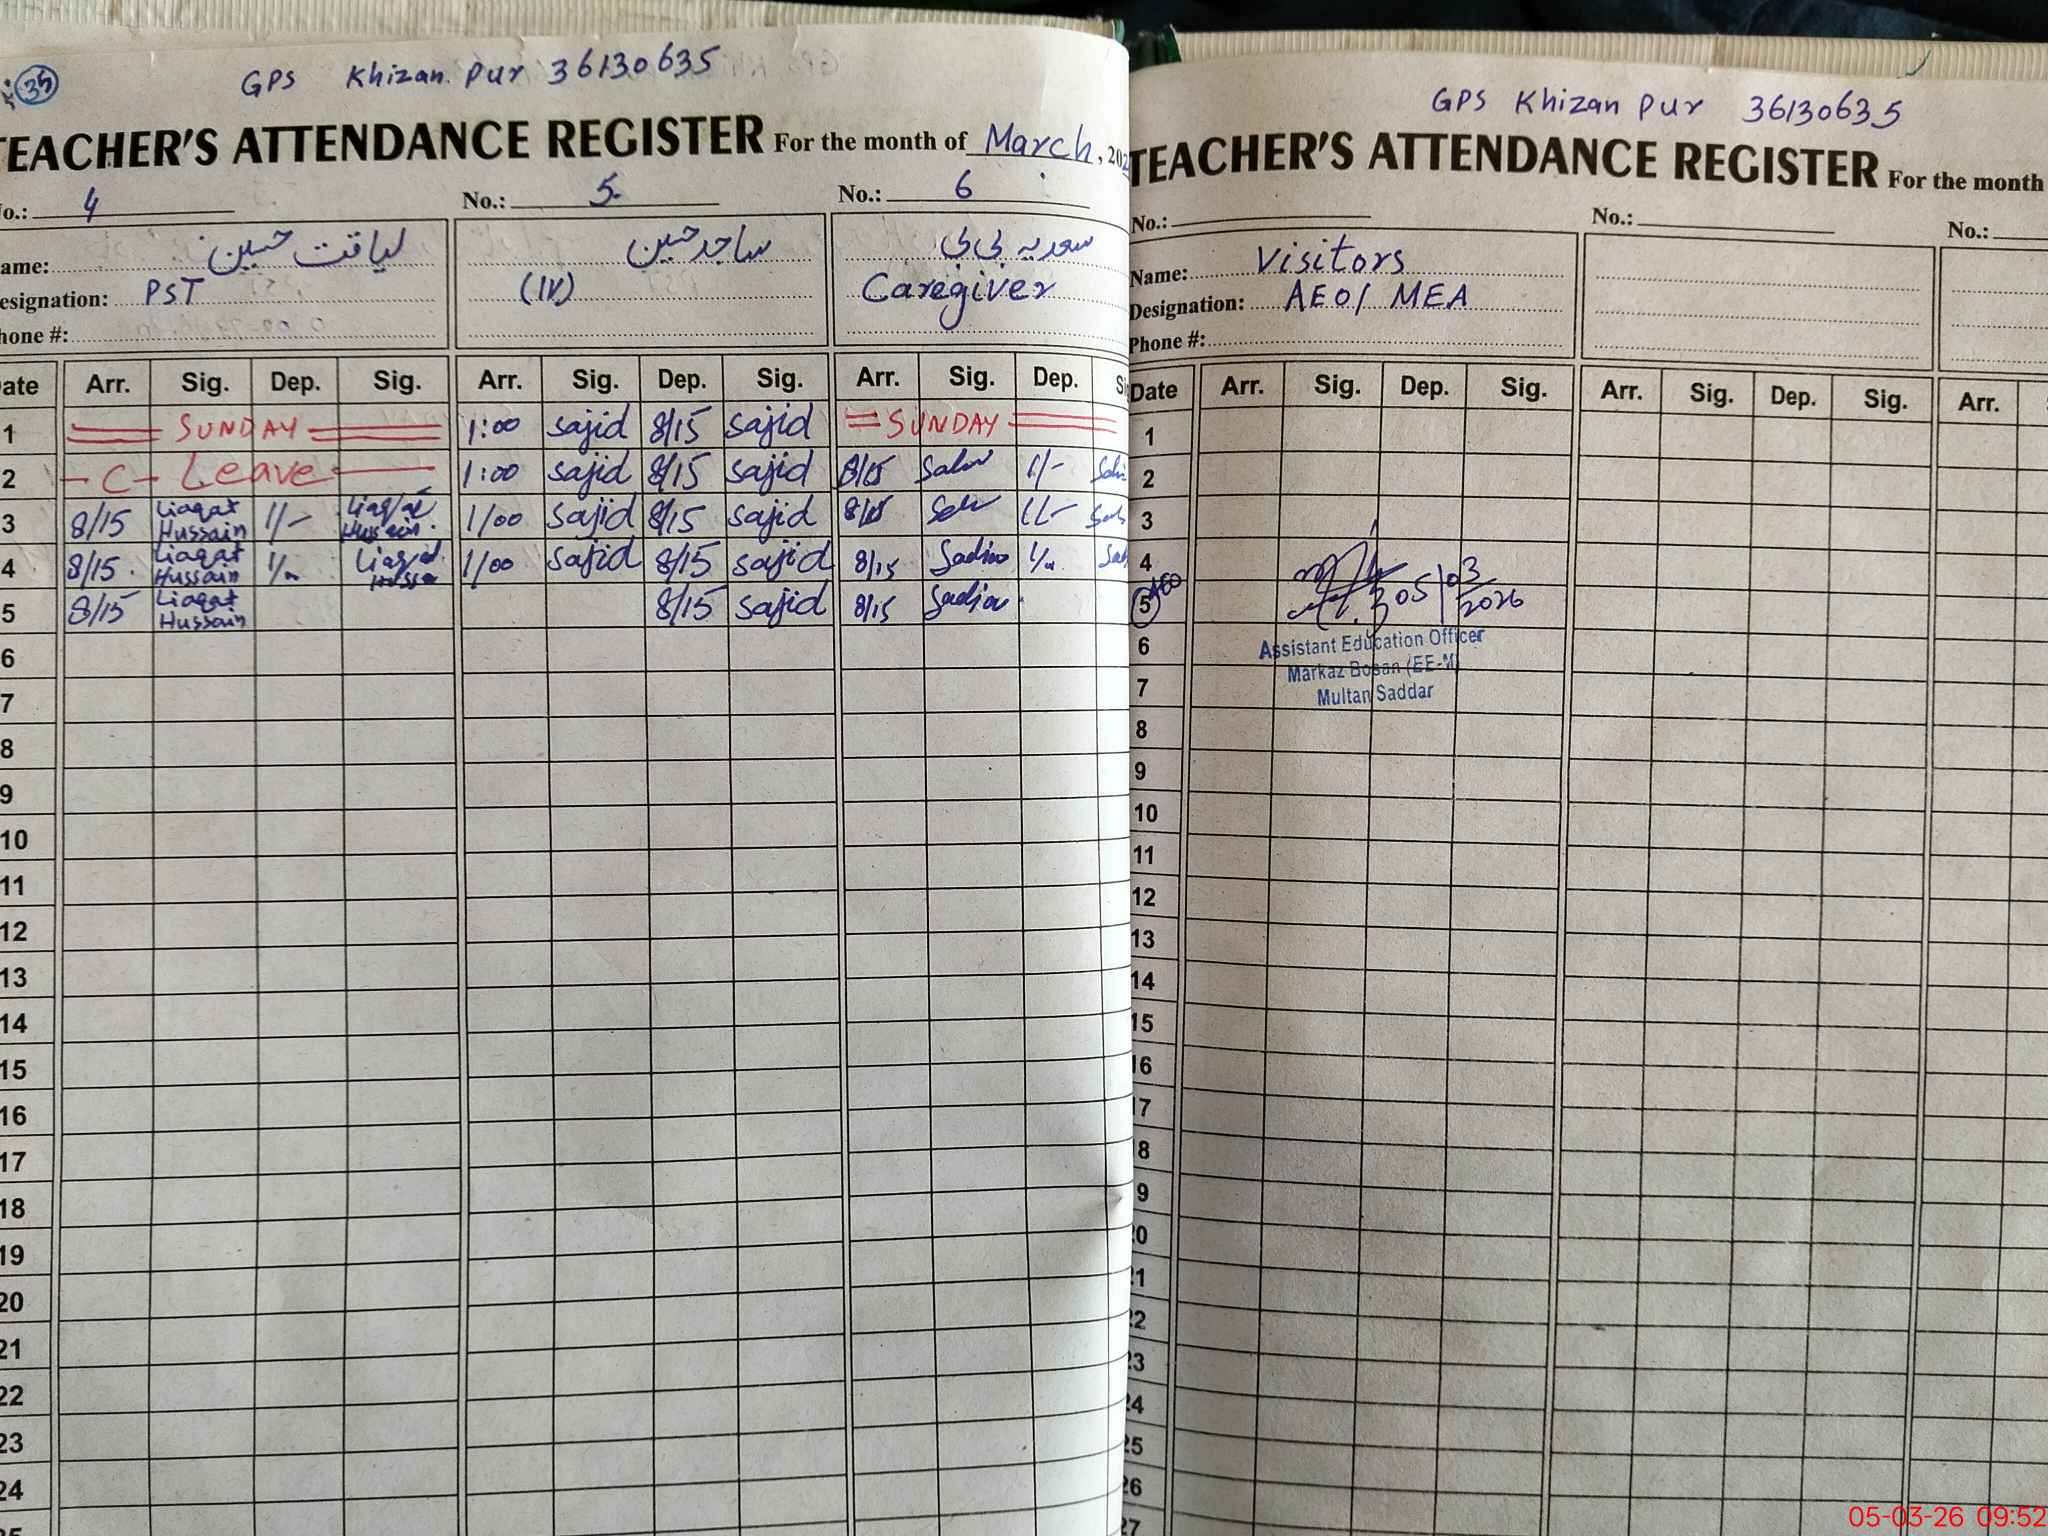 35
GPS Khizan Pur 36130635
TEACHER'S ATTENDANCE REGISTER For the month of March, 202
No.: 4 No.: 5 No.: 6
Name: لیاقت حسین ساجد حسین سعدیہ بی بی
Designation: PST (IV) Caregiver
Phone #:
Date Arr. Sig. Dep. Sig. Arr. Sig. Dep. Sig. Arr. Sig. Dep. Sig.
1 SUNDAY 1:00 Sajid 8/15 Sajid SUNDAY
2 C - Leave 1:00 Sajid 8/15 Sajid 8/15 1/-
3 8/15 Liaqat Hussain 1/- Liaqat Hussain 1/00 Sajid 8/15 Sajid 8/15 1/-
4 8/15 Liaqat Hussain 1/- Liaqat Hussain 1/00 Sajid 8/15 Sajid 8/15 Sadia 1/-
5 8/15 Liaqat Hussain 8/15 Sajid 8/15 Sadia
6
7
8
9
10
11
12
13
14
15
16
17
18
19
20
21
22
23
24
25
GPS Khizan Pur 36130635
TEACHER'S ATTENDANCE REGISTER For the month
No.: No.: No.:
Name: Visitors
Designation: AEO/ MEA
Phone #:
Date Arr. Sig. Dep. Sig. Arr. Sig. Dep. Sig. Arr.
1
2
3
4
5 AEO 05/03/2026
6 Assistant Education Officer
Markaz Bosan (EE-M)
7 Multan Saddar
8
9
10
11
12
13
14
15
16
17
18
19
20
21
22
23
24
25
26
27
05-03-26 09:52